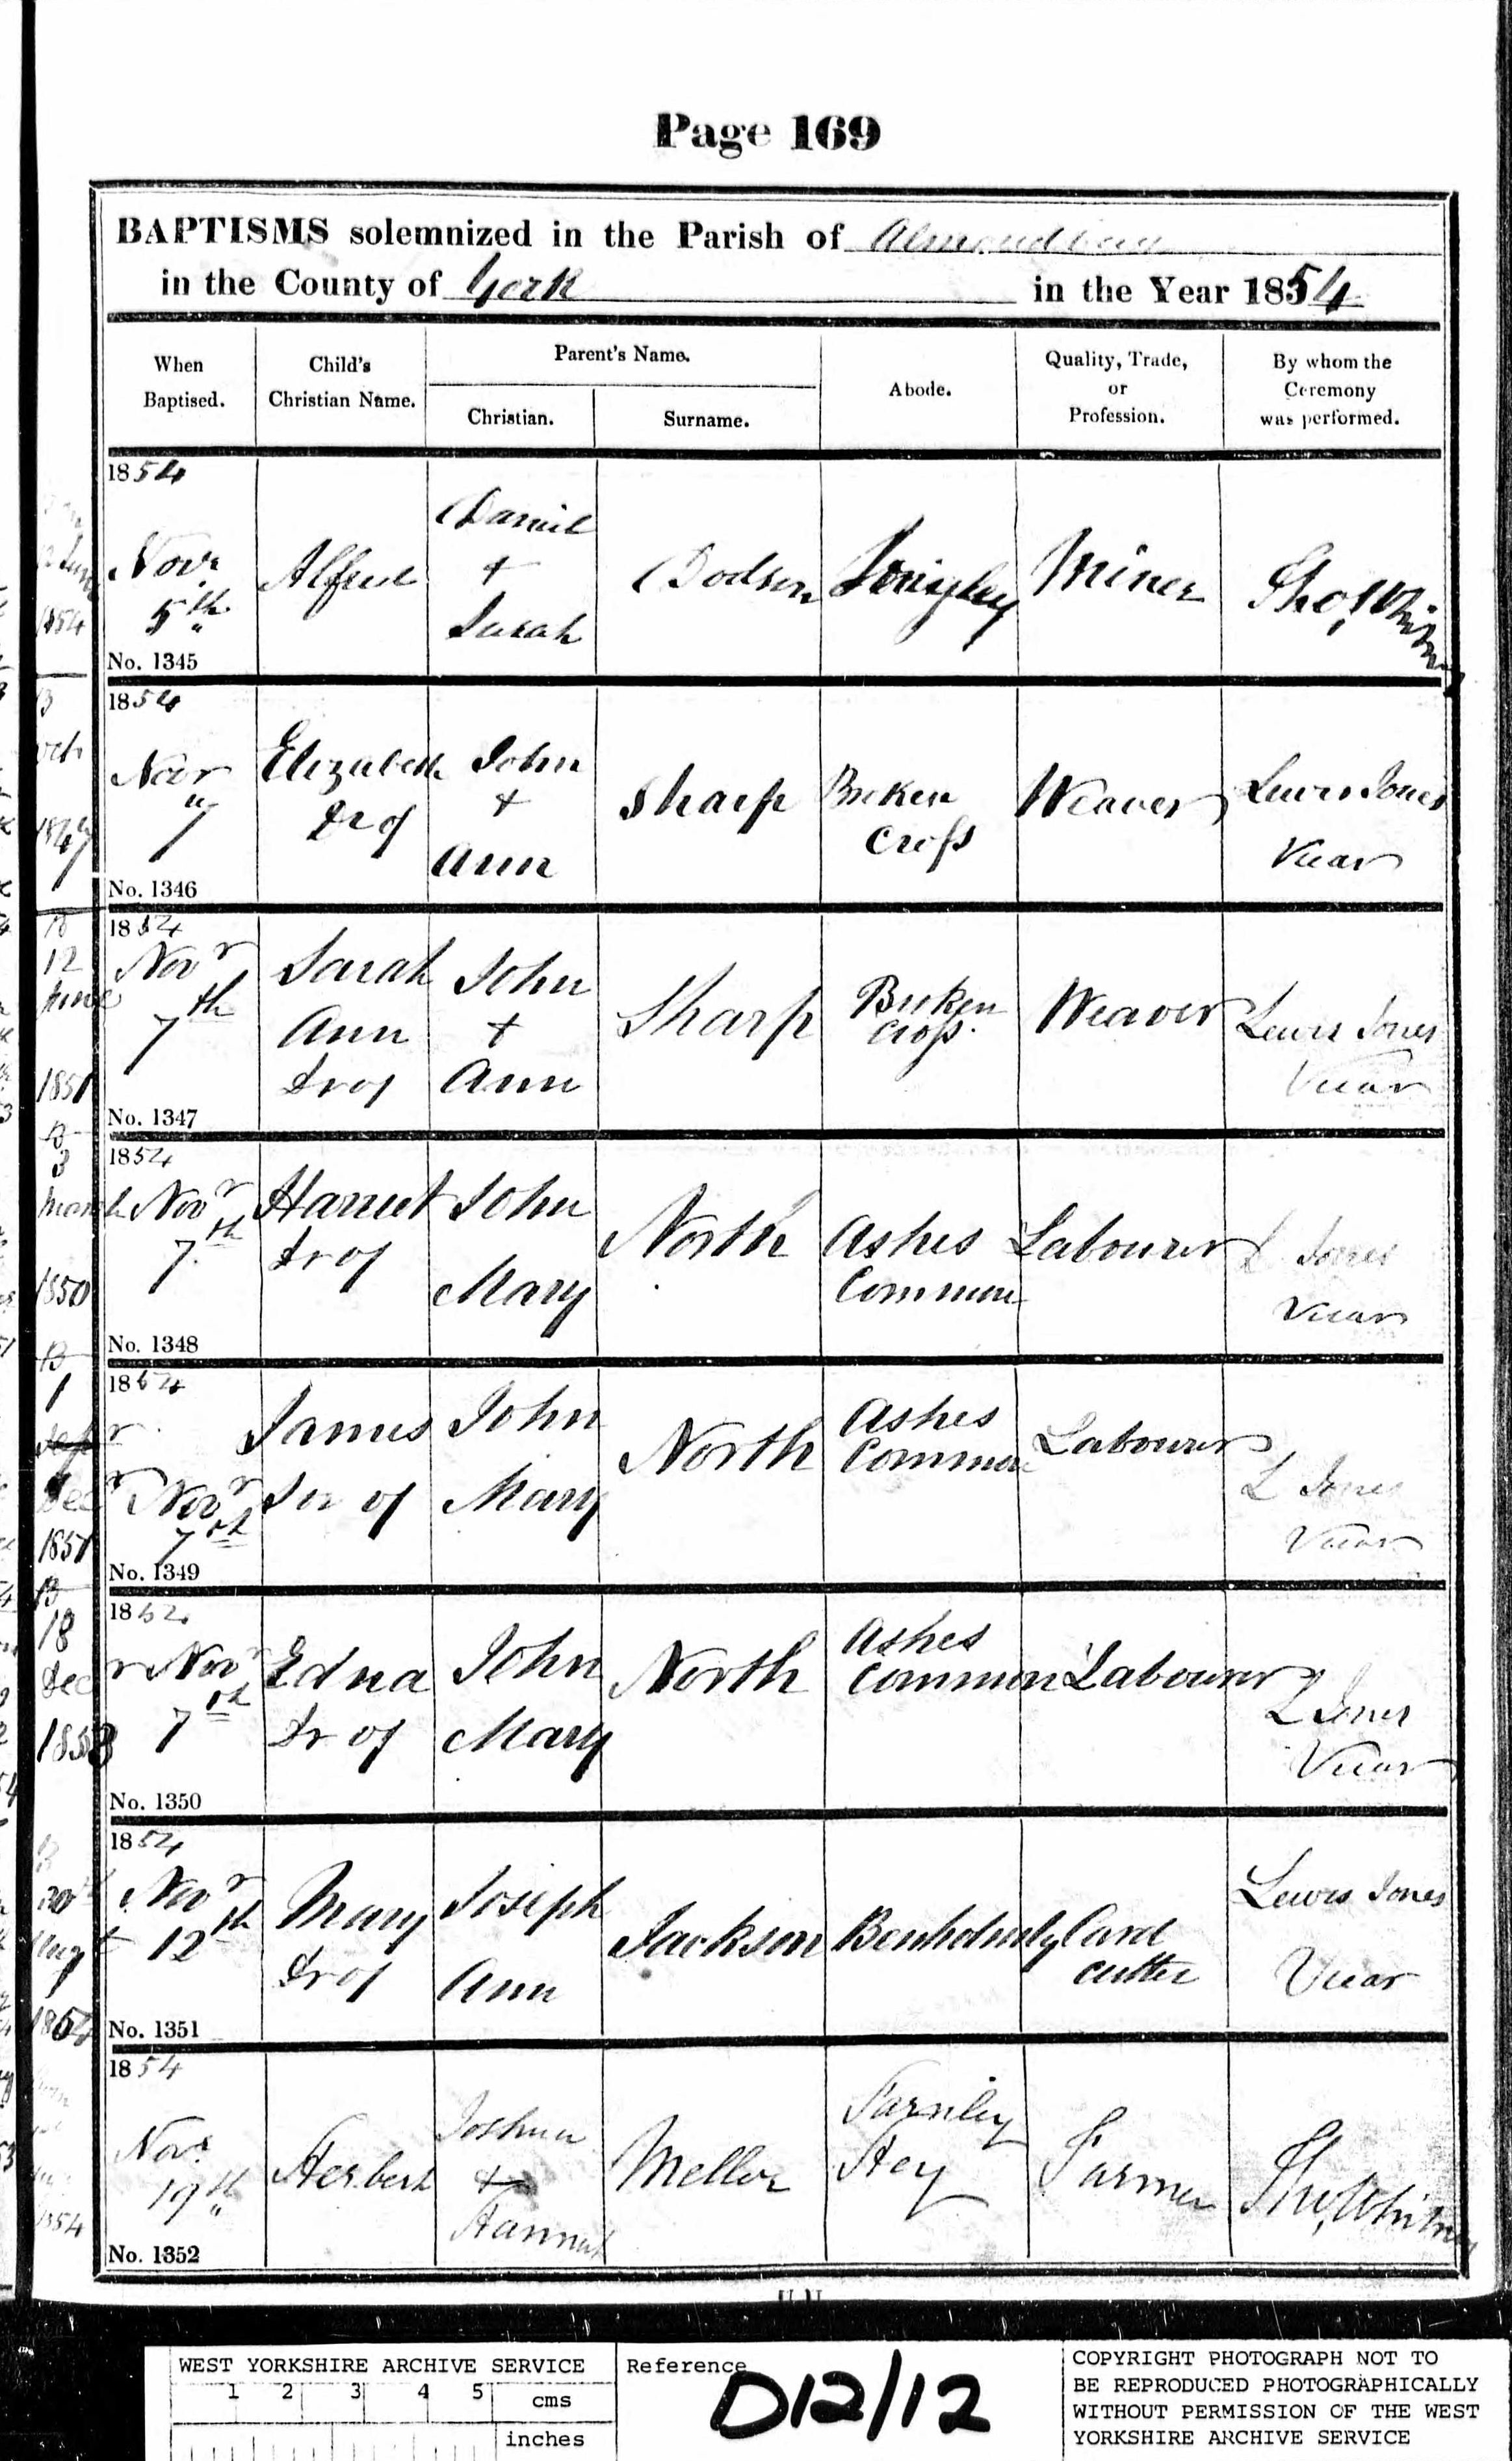 Page 169
BAPTISMS solemnized in the Parish of Almondbury
in the County of York in the Year 1854
When Baptised.
Child's Christian Name.
Parent's Name.
Christian.
Surname.
Abode.
Quality, Trade, or Profession.
By whom the Ceremony was performed.
1854
Novr 5th
No. 1345
Alfred
Daniel + Sarah
Dodson
Longley
Miner
1854
Novr 7
No. 1346
Elizabeth Dr of
John + Ann
Sharp
Broken Cross
Weaver
Lewis Jones Vicar
1854
Novr 7th
No. 1347
Sarah Ann Dr of
John + Ann
Sharp
Broken Cross
Weaver
Lewis Jones Vicar
1854
Novr 7th
No. 1348
Harriet Dr of
John Mary
North
Ashes Common
Labourer
L Jones Vicar
1854
Novr 7th
No. 1349
James Son of
John Mary
North
Ashes Common
Labourer
L Jones Vicar
1854
Novr 7th
No. 1350
Edna Dr of
John Mary
North
Ashes Common
Labourer
L Jones Vicar
1854
Novr 12th
No. 1351
Mary Dr of
Joseph Ann
Jackson
Benholmly
Card cutter
Lewis Jones Vicar
1854
Novr 19th
No. 1352
Herbert
Joshua + Hannah
Mellor
Farnley Hey
Farmer
12
June
1851
B
3
March
1850
B
1
Decr
1851
B
18
Decr
1853
1854
WEST YORKSHIRE ARCHIVE SERVICE
1 2 3 4 5 cms
inches
Reference
D12/12
COPYRIGHT PHOTOGRAPH NOT TO
BE REPRODUCED PHOTOGRAPHICALLY
WITHOUT PERMISSION OF THE WEST
YORKSHIRE ARCHIVE SERVICE